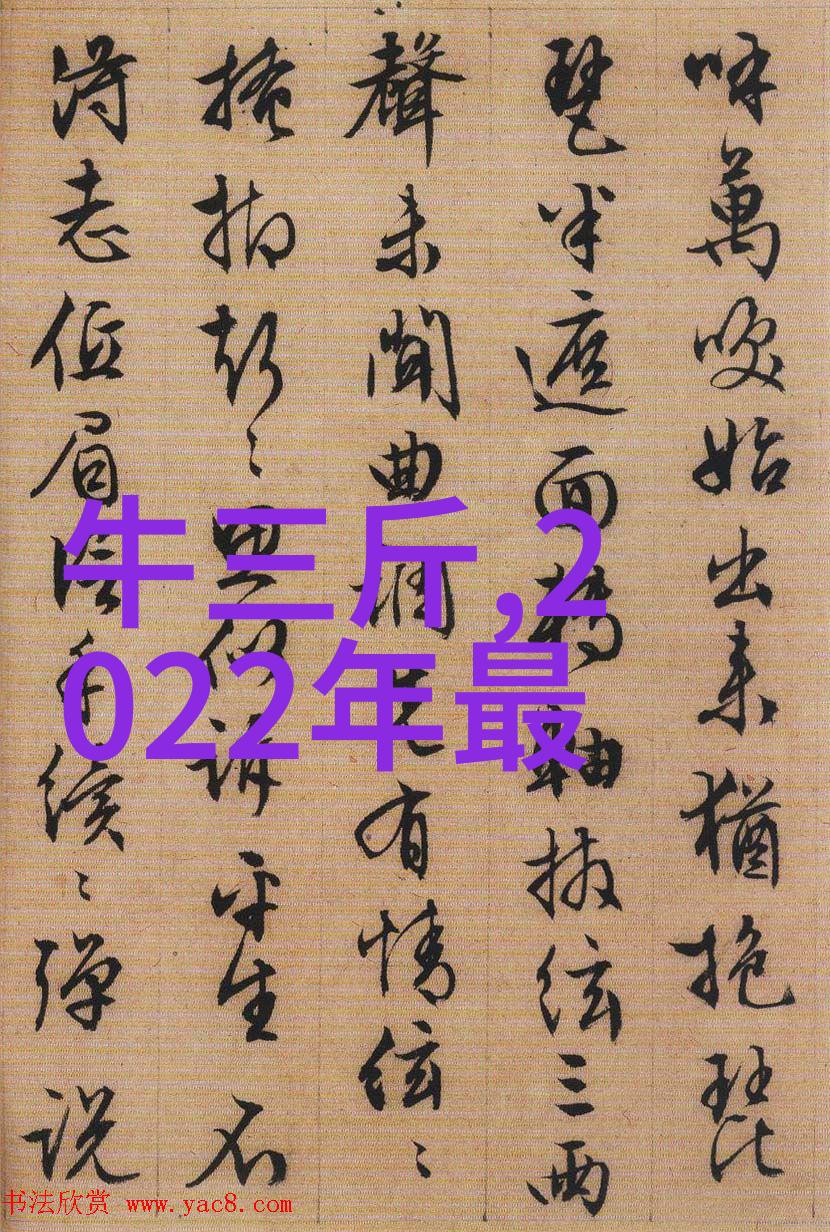 呼萬喚始出来猶抱琵
琶半遮面轉軸撥絃三兩
聲未聞曲調先有情絃〻
掩抑聲〻思似訴平生不
得志低眉信手續〻彈說
牛三斤,2
022年最
书法欣赏 www.yac8.com